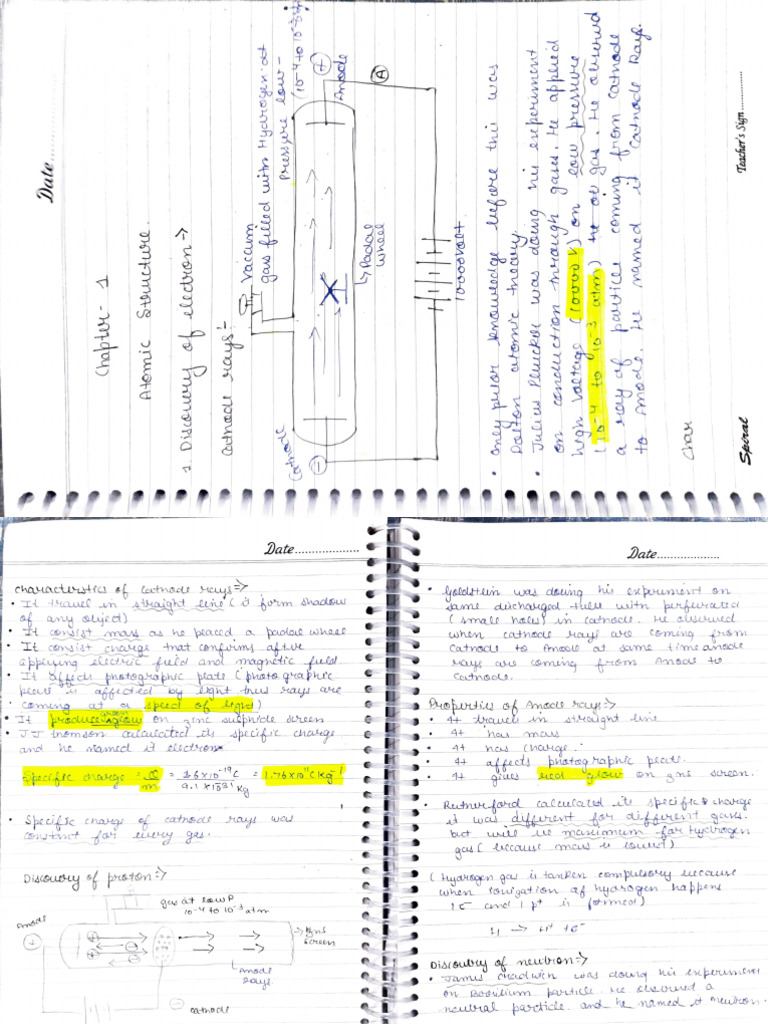 Date
Chapter - 1
Atomic Structure.
1. Discovery of electron→
Cathode rays:-
Vaccum
gas filled with Hydrogen at
Pressure low-
(10-4 to 10-3 atm)
Cathode
Anode
- +
A
Padal
wheel
10000 volt
• Only prior knowledge before this was
Dalton atomic theory.
• Julius Plucker was doing his experiment
on conduction through gases. He applied
high voltage (10000 V) on low pressure
(10-4 to 10-3 atm) to gas. He observed
a ray of particle coming from cathode
to Anode. He named it Cathode Rays.
Char
Spiral
Teacher's Sign
Date
Characterstics of cathode rays:⇒
• It travel in straight line (it form shadow
of any object)
• It consist mass as he placed a padal wheel
• It consist charge that confirms after
applying electric field and magnetic field.
• It affects photographic plate (photographic
plate is affected by light thus rays are
coming at a speed of light)
• It produce green glow on zinc sulphide screen
• JJ thomson calculated its specific charge
and he named it electron
Specific charge = e/m = 1.6 x 10-19 C / 9.1 x 10-31 kg = 1.76 x 1011 C kg-1
• Specific charge of cathode rays was
constant for every gas.
Discovery of proton:⇒
gas at low P
10-4 to 10-3 atm
Anode
+
→ Zns
screen
Anode
rays.
- cathode
Date
• Goldstein was doing his experiment on
same discharged tube with perforated
(small holes) in cathode. He observed
when cathode rays are coming from
Cathode to Anode at same time anode
rays are coming from Anode to
Cathode.
Properties of Anode rays:⇒
• It travels in straight line
• It has mass
• It has charge.
• It affects photographic plate.
• It gives red glow on zns screen.
• Rutherford calculated its specific charge
it was different for different gases.
but will be maximum for hydrogen
gas (because mass is lowest)
(Hydrogen gas is tanken compulsory because
when ionization of hydrogen happens
1e- and 1 p+ is formed)
H → H+ + e-
Discovery of neutron:⇒
• James chadwin was doing his experiment
on Boorilium particle. He observed a
neutral particle. and he named it neutron.